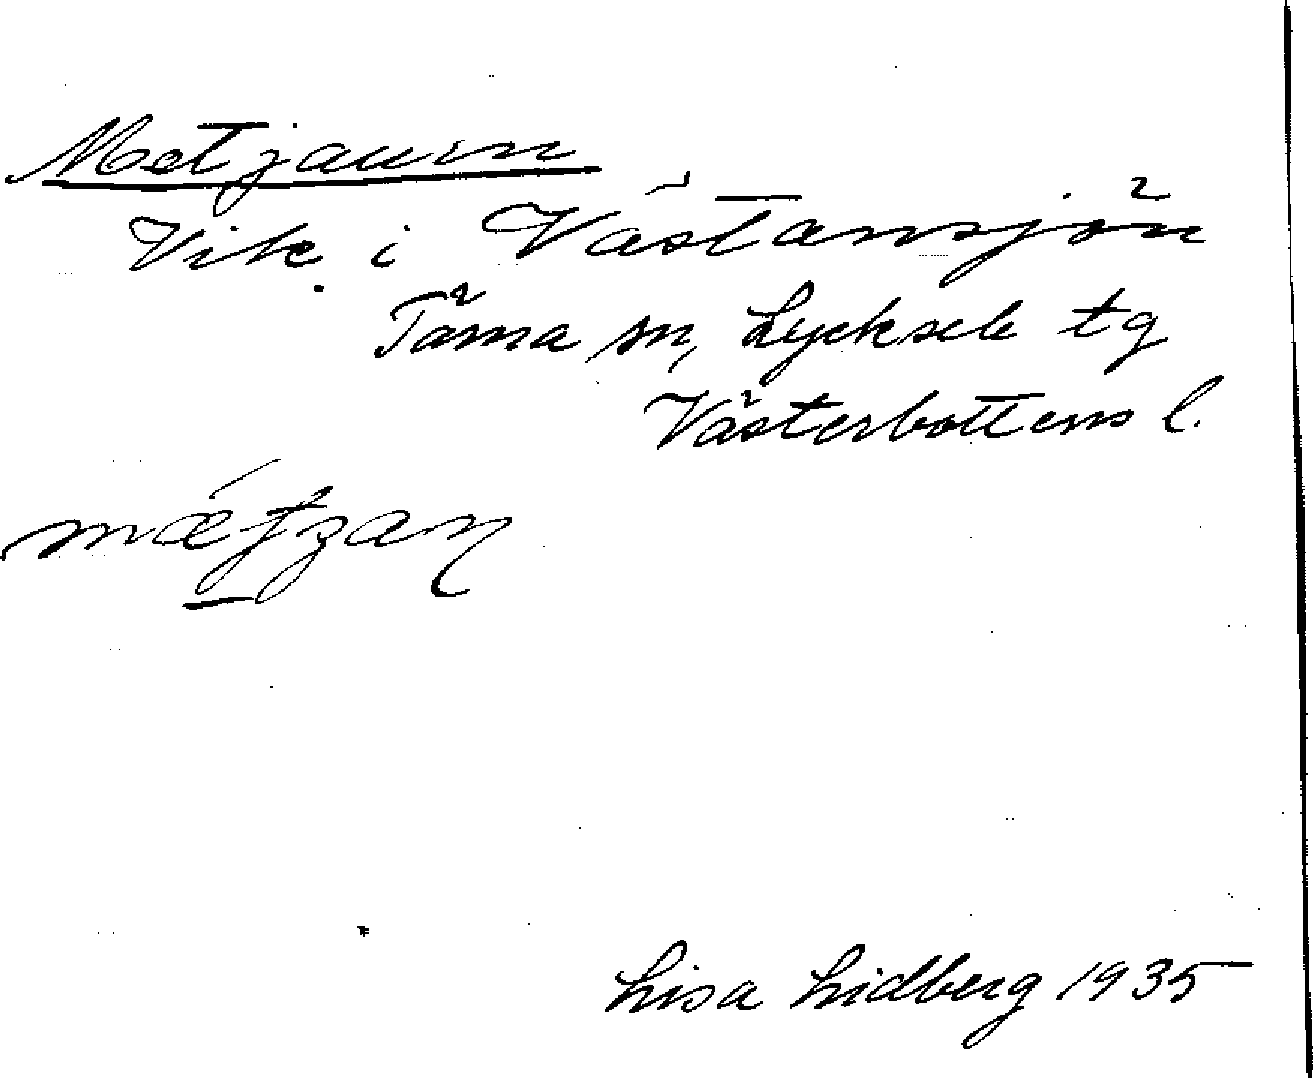 Metjauen
Vik i Västansjön
Tärna sn, Lycksele tg
Västerbottens l.
Lisa Lidberg 1935